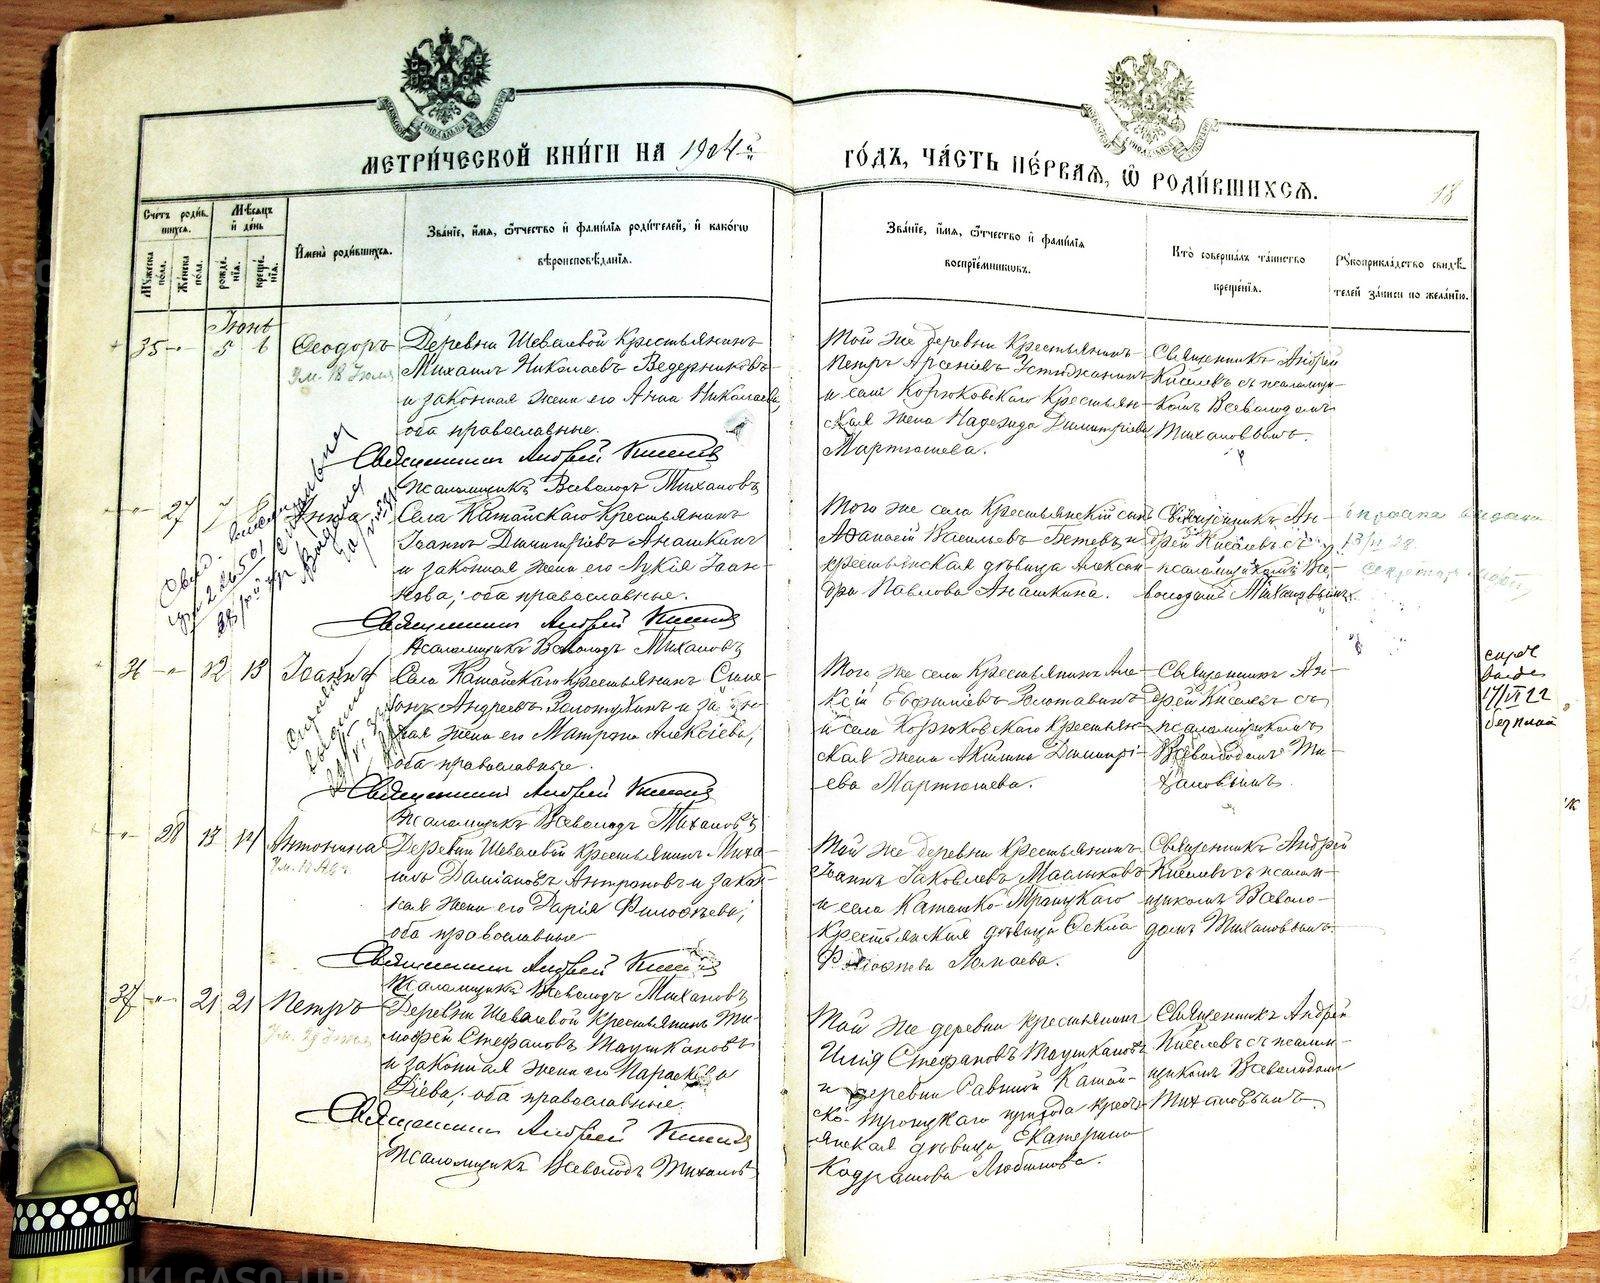 МЕТРИ́ЧЕСКОЙ КНИ́ГИ НА 1904й
ГО́ДЪ, ЧА́СТЬ ПЕ́РВАЯ, Ѡ҆ РОДИ́ВШИХСѦ.
18
Счетъ роди́в-
шихся.
Мѣсяцъ
и де́нь
Му́жеска
по́ла.
Же́нска
по́ла.
рожде́-
нія.
креще́-
нія.
И҆мена̀ роди́вшихся.
Зва́ніе, и҆́мя, ѻ҆́тчество и҆ фами́лія роди́телей, и҆ како́гѡ
вѣроисповѣ́данія.
Зва́ніе, и҆́мя, ѻ҆́тчество и҆ фами́лія
воспріе́мниковъ.
Кто̀ соверша́лъ та́инство
креще́нія.
Рꙋкоприкла́дство свидѣ́-
телей за́писи по жела́нію.
Іюнь
35 -"- 5 6 Ѳеодоръ
Ум. 18 Іюля
Деревни Шевалевой крестьянинъ
Михаилъ Николаевъ Ведерниковъ
и законная жена его Анна Николаева,
оба православные.
Священникъ Андрей Киселев
Псаломщикъ Всеволодъ Тихановъ
Той же деревни крестьянинъ
Петръ Арсеніевъ Устюжанинъ
и села Корюковскаго крестьян-
ская жена Надежда Димитріева
Мартюшева.
Священникъ Андрей
Киселевъ съ псаломщи-
комъ Всеволодомъ
Тихановымъ.
-"- 27 7 8 Анна
Села Катайскаго крестьянинъ
Іоаннъ Димитріевъ Анашкинъ
и законная жена его Лукія Іоан-
нова; оба православные.
Священникъ Андрей Киселев
Псаломщикъ Всеволодъ Тихановъ
Того же села крестьянскій сынъ
Аѳанасій Васильевъ Бетевъ и
крестьянская дѣвица Алексан-
дра Павлова Анашкина.
Священникъ Ан-
дрей Киселевъ съ
псаломщикомъ Все-
володомъ Тихановымъ.
36 -"- 12 13 Іоаннъ
Села Катайскаго крестьянинъ Симе-
онъ Андреевъ Золотухинъ и закон-
ная жена его Матрона Алексіева;
оба православные.
Священникъ Андрей Киселев
Псаломщикъ Всеволодъ Тихановъ
Того же села крестьянинъ Але-
ксій Евфиміевъ Золотавинъ
и села Корюковскаго крестьян-
ская жена Акилина Димитрі-
ева Мартюшева.
Священникъ Ан-
дрей Киселевъ съ
псаломщикомъ
Всеволодомъ Ти-
хановымъ.
17/VI 22
-"- 28 13 14 Антонина
Деревни Шевалевой крестьянинъ Миха-
илъ Даміановъ Антроповъ и закон-
ная жена его Дарія Филоѳеева;
оба православные
Священникъ Андрей Киселев
Псаломщикъ Всеволодъ Тихановъ
Той же деревни крестьянинъ
Іоаннъ Іаковлевъ Масликовъ
и села Катайско-Троицкаго
крестьянская дѣвица Ѳекла
Филоѳеева
Священникъ Андрей
Киселевъ съ псалом-
щикомъ Всеволо-
домъ Тихановымъ.
37 -"- 21 21 Петръ
Деревни Шевалевой крестьянинъ Ти-
моѳей Стефановъ Таушкановъ
и законная жена его Параскева
оба православные.
Священникъ Андрей Киселев
Псаломщикъ Всеволодъ Тихановъ
Той же деревни крестьянинъ
Илія Стефановъ Таушкановъ
и деревни Катай-
ско-Троицкаго прихода крест-
янская дѣвица Екатерина
Священникъ Андрей
Киселевъ съ псалом-
щикомъ Всеволодомъ
Тихановымъ.